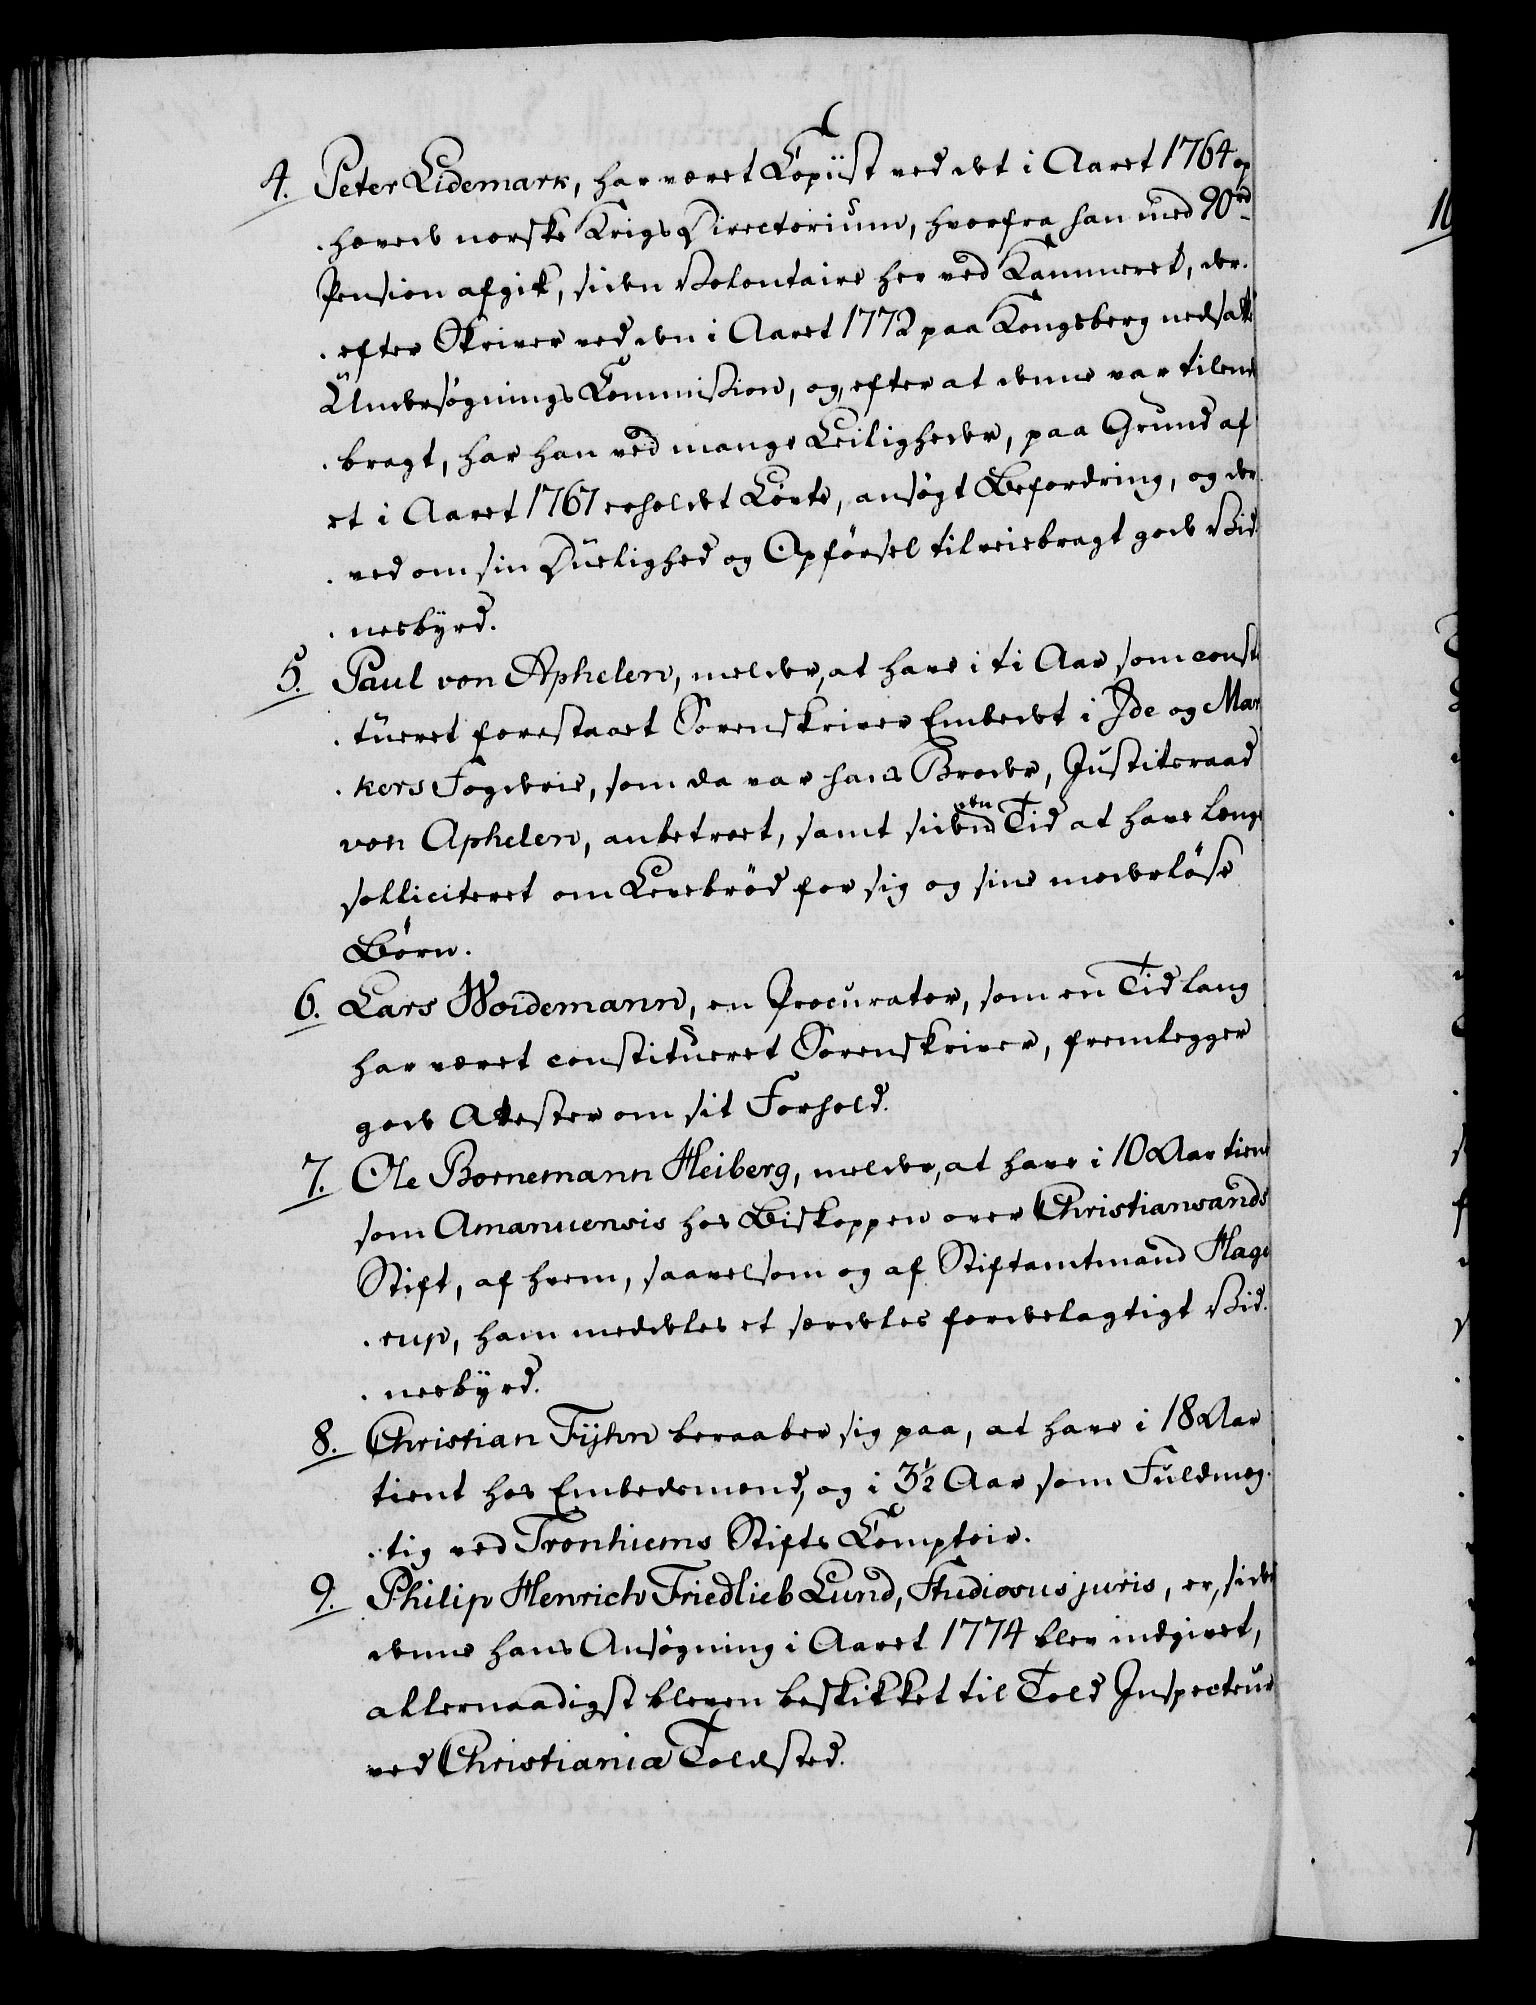 4. Peter Lidemark, har været Copiist ved det i Aaret 1764 op
hævede norske Krigs Directorium, hvorfra han med 90 rd
Pension afgik, siden Volontaire her ved Kammeret, der-
efter Skriver ved den i Aaret 1772 paa Kongsberg nedsatte
Undersøgnings Commission, og, efter at denne var tilende
bragt, har han ved mange Leiligheder, paa Grund af
et i Aaret 1767 erholdet Løvte, ansøgt Befordring, og der-
ved om sin Duelighed og Opførsel tilveiebragt gode Vid-
nesbÿrd.
5. Paul von Aphelen, melder, at have i ti Aar som consti
tueret forestaaet Sorenskriver Embedet i Ide og Mar
kers Fogderie, som da var hans Broder, Justitsraad
von Aphelen, anbetroet, samt siden den Tid at have længe
solliciteret om Levebrød for sig og sine moderløse
Børn.
6. Lars Woidemann, en Procurator, som en Tid lang
har været constitueret Sorenskriver, fremlegger
gode Attester om sit Forhold.
7. Ole Bornemann Heiberg, melder, at have i 10 Aar tient
som Amanuensis hos Biskoppen over Christiansands
Stift, af hvem, saavelsom og af Stiftamtmand Hage
rup, ham meddeles et særdeles fordelagtigt Vid-
nesbÿrd.
8. Christian Fÿhn beraaber sig paa, at have i 18 Aar
tient hos Embedsmænd, og i 3½ Aar som Fuldmæg-
tig ved Tronhiems Stifts Comptoir.
9. Philip Henrich Friedlieb Lund, Studiosus juris, er, siden
denne hans Ansøgning i Aaret 1774 blev indgivet,
allernaadigst bleven beskikket til Told Inspecteur
ved Christiania Toldsted.
10